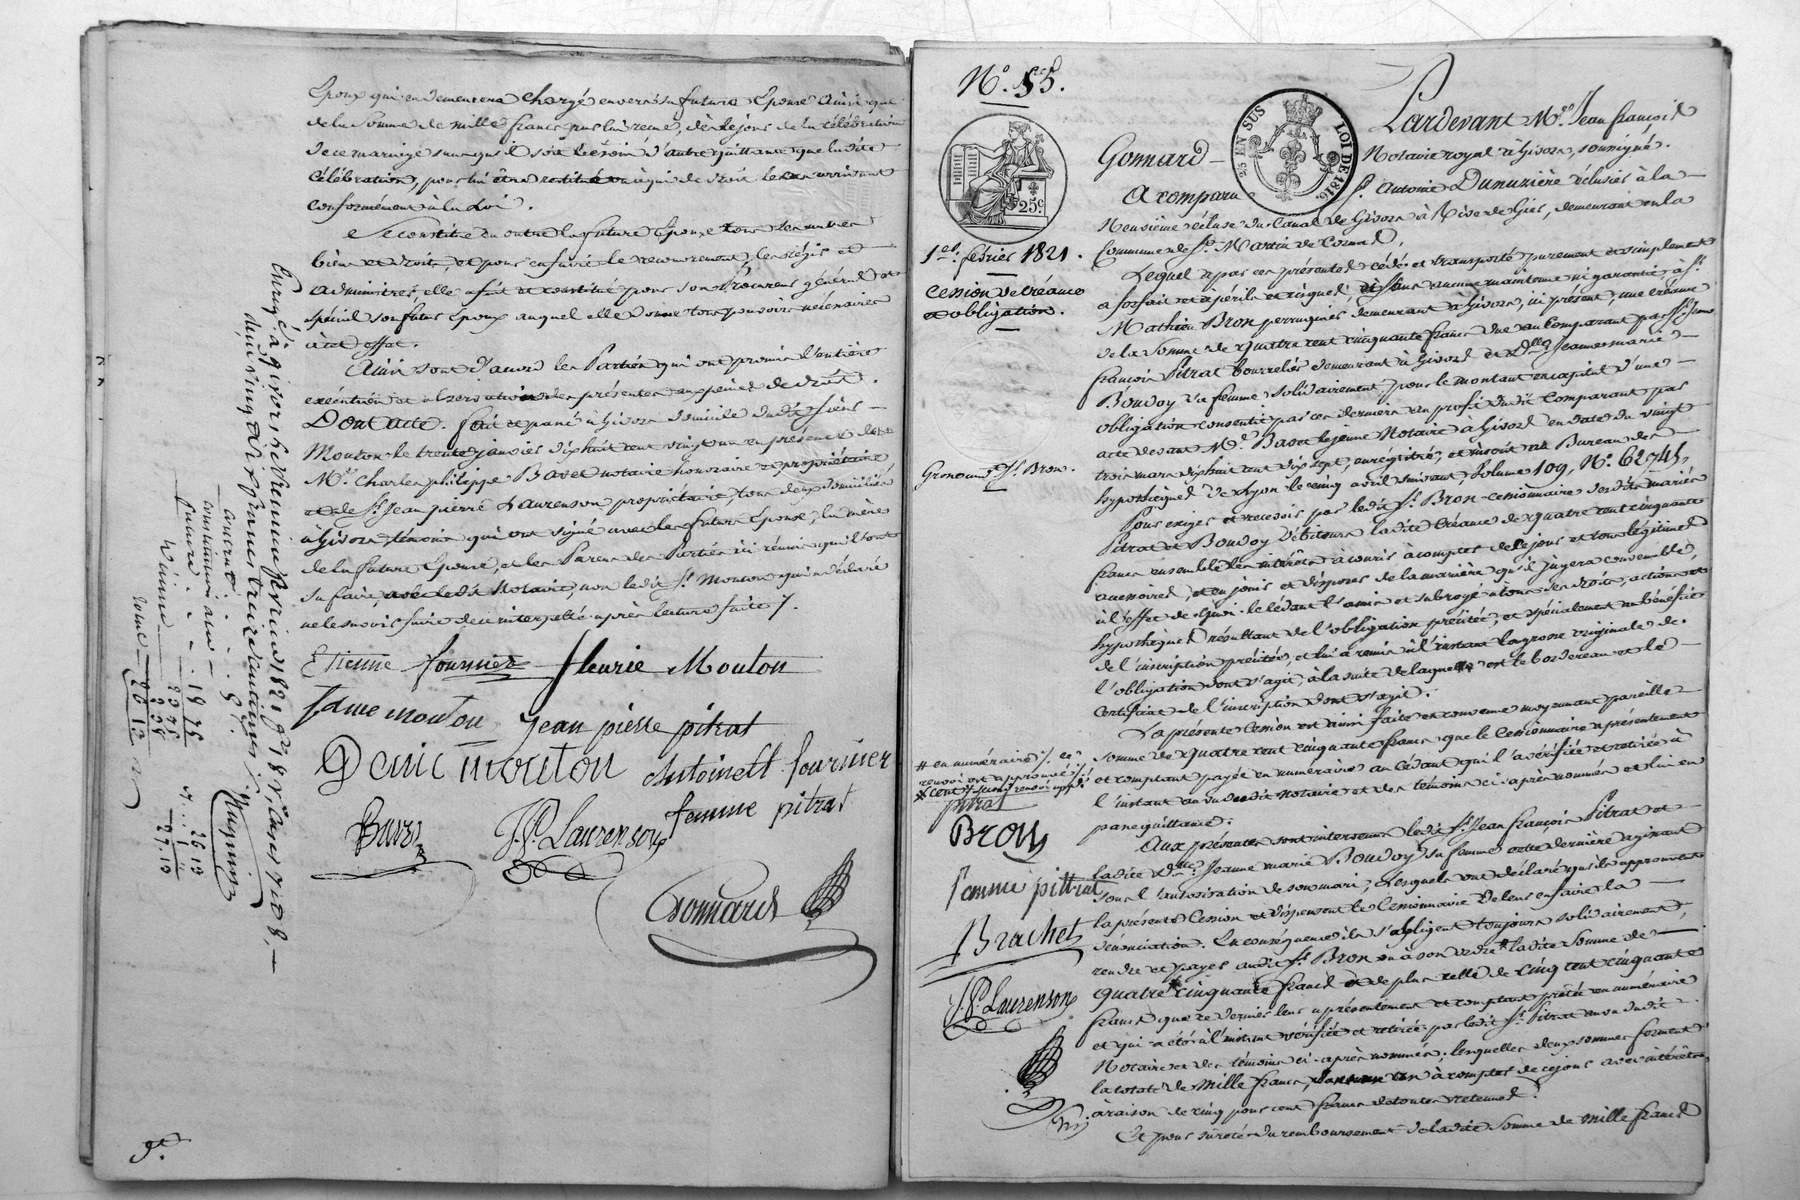 Epoux qui en demeurera chargé envers sa future Epouse ainsi que
de la Somme de mille francs par lui reçue, dès le jour de la célébration
de ce mariage sans qu'il soit besoin d'autre quittance que la dite
célébration, pour lui être restitué ou à qui de droit le cas arrivant
conformément à la Loi.
Se constitue en outre la future Epouse tous les autres
biens et droits, et pour en faire le recouvrement, les régir et
administrer, elle a fait et constitué pour son Procureur général et
spécial son futur Epoux auquel elle donne tous pouvoirs nécessaires
à cet effet.
Ainsi sont d'accord les Parties qui ont promis l'entière
exécution et observation des présentes aux peines de droit.
Dont acte. fait et passé à Givors domicile dudit Sieur
Mouton le trente janvier dix huit cent vingt un en présence de
Mr. Charles philippe Bavet notaire honoraire et propriétaire
et de Sr. Jean pierre Laurenson propriétaire, tous deux domiciliés
à Givors témoins qui ont signé avec les futurs Epoux, la mère
de la future Epouse, et les Parens des Parties ici réunis qui l'ont
su faire, avec ledit Notaire, non ledit Sr. Mouton qui a déclaré
ne le savoir faire de ce interpellé après lecture faite /.
Etienne fournier fleurie Mouton
fdme mouton jean pierre pitrat
Denic mouton Antoinett fournier
femme pitrat
Bavet J. P. Laurenson
Gonnard
Enregé à givors le huit février 1821
19 25
2 38
26 13
1
27 13
9e.
No. 55.
25 EN SUS LOI DE 1816
25c
Pardevant Me. Jean françois
Gonnard Notaire royal à Givors, soussigné.
A comparu Sr. Antoine Dumuzière éclusier à la
Neusième écluse du Canal de Givors à Rive de Gier, demeurant en la
Commune de St. Martin de Cornas,
1er. février 1821.
Cession de créance
et obligation.
Lequel a par ces présentes cédé et transporté purement et simplement
à forfait et à périls et risques, et sans aucune maintenue ni garantie, à Sr.
Mathieu Bron perruquier demeurant à Givors, ici présent, une créance
de la Somme de quatre cent cinquante francs due au Comparant par Sr. Jean
françois Pitrat bourrelier demeurant à Givors et Dlle. Jeanne marie
Boudoy sa femme solidairement pour le montant en capital d'une
obligation consentie par ces derniers au profit dudit Comparant par
acte devant Me. Bavet le jeune Notaire à Givors en date du vingt
trois mars dix huit cent dix sept, enregistré, et inscrit au Bureau des
hypothèques de Lyon le cinq avril suivant, Volume 109, No. 62745,
Grosse au Sr. Bron.
Pour exiger et recevoir par ledit Sr. Bron cessionnaire desdits mariés
Pitrat et Boudoy débiteurs ladite Créance de quatre cent cinquante
francs ensemble les intérêts à courir à compter de ce jour et tous légitimes
accessoires, et en jouir et disposer de la manière qu'il jugera convenable,
à l'effet de quoi le cédant l'a mis et subrogé à tous ses droits, actions et
hypothèques résultant de l'obligation précitée, et spécialement au bénéfice
de l'inscription précitée, et lui a remis à l'instant la grosse originale de
l'obligation dont s'agit, à la suite de laquelle est le bordereau et le
certificat de l'inscription dont s'agit.
La présente Cession est ainsi faite et convenue moyennant pareille
somme de quatre cent cinquante francs que le Cessionnaire a présentement
et comptant payée en numéraire au Cédant qui l'a vérifiée et retirée à
l'instant au vu dudit Notaire et des témoins ci-après nommés et lui en
passe quittance.
# en numéraire /. ce
renvoi est approuvé /.
* cent /. pour renvoi appé.
pitrat
Bron
femme pittrat
Brachet
J. P. Laurenson
Aux présentes sont intervenus ledit Sr. Jean François Pitrat et
ladite Dme. Jeanne marie Boudoy sa femme cette dernière agissant
sous l'autorisation de son mari, lesquels ont déclaré qu'ils approuvent
la présente Cession et dispensent le Cessionnaire de leur en faire la
dénonciation. En conséquence ils s'obligent toujours solidairement,
rendre et payer audit Sr. Bron ou à son ordre ladite Somme de
quatre * cinquante francs et de plus celle de cinq cent cinquante
francs que ce dernier leur a présentement et comptant prêtée en numéraire
et qui a été à l'instant vérifiée et retirée par ledit Sr. Pitrat au vu dudit
Notaire et des témoins ci-après nommés, lesquelles deux sommes forment
la totale de mille francs, à compter de ce jour avec intérêts
à raison de cinq pour cent francs de toutes retenues.
Et pour sûreté du remboursement de ladite Somme de mille francs